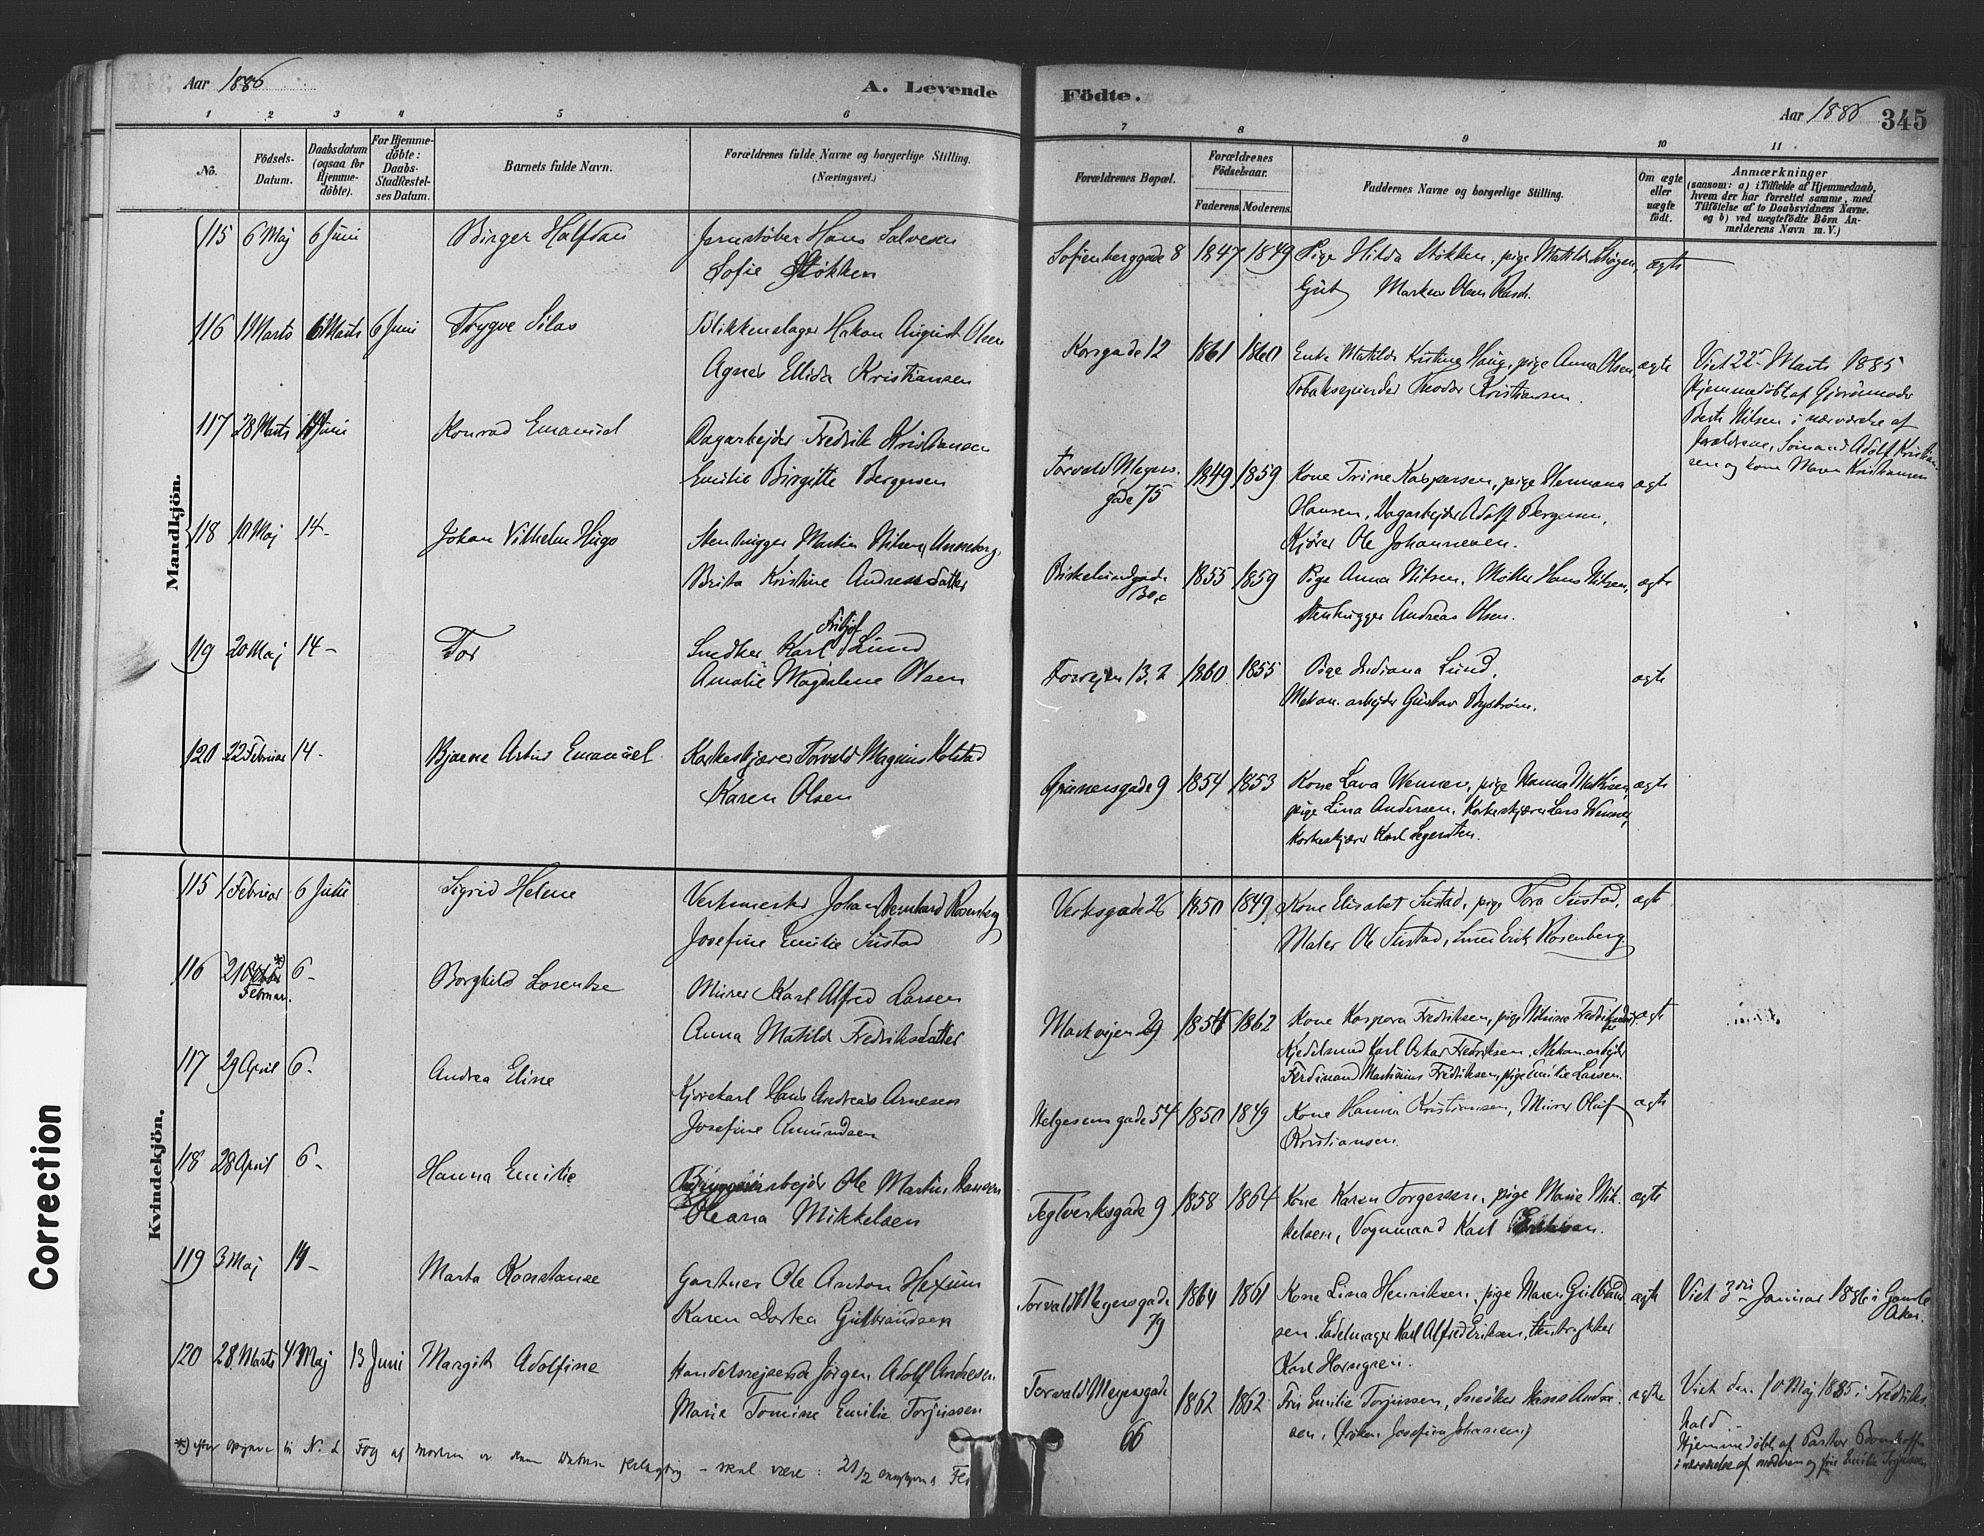 Aar 1886
A. Levende
Födte.
Aar 1886
345
1 2 3 4 5 6 7 8 9 10 11
No.
Födsels-
Datum.
Daabsdatum
(ogsaa for
Hjemme-
döbte).
For Hjemme-
döbte:
Daabs-
Stadfæstel-
ses Datum.
Barnets fulde Navn.
Forældrenes fulde Navne og borgerlige Stilling.
(Næringsvei.)
Forældrenes Bopæl.
Forældrenes
Födselsaar.
Faderens.
Moderens.
Faddernes Navne og borgerlige Stilling.
Om ægte
eller
uægte
födt.
Anmærkninger
(saasom: a) i Tilfælde af Hjemmedaab,
hvem der har forrettet samme, med
Tilföielse af to Daabsvidners Navne.
og b) ved uægtefödte Börn An-
melderens Navn m. V.)
Mandkjön.
115 6 Maj 6 Juni Birger Halfdan Jernstøber Hans Salvesen
Sofie Støkken
Sofienberggade 8 1847 1849 Pige Hilda Støkken, pige Matilde
Markus Olsen ægte
116 Marts 6 Marts 6 Juni Trygve Silas Blikkenslager Hakon August Olsen
Agnes Ellida Kristiansen
Korsgade 12 1861 1860 Enke Matilde Kristine Haug, pige Anna Olsen, ægte
Tobakspinder Teodor Kristiansen.
Viet 22 Marts 1885
Hjemmedøbt af Gjordmoder
Berte Nilsen i nærværelse af
forældrene, Sømand Adolf Kristian-
sen og kone Maren Kristiansen
117 28 Marts Juni Konrad Emanuel Dagarbejder Fredrik Kristiansen
Emilie Birgitte Bergersen
Torvald Meyers-
gade 75 1849 1859 Kone Trine Kaspersen, pige Hermana ægte
Hansen, Dagarbejder Adolf Bergersen,
Kjører Ole Johannesen.
118 10 Maj 14- Johan Vilhelm Hugo Stenhugger Martin Nilsen
Brita Kristine Andreasdatter
Birkelundgade
30,c 1855 1859 Pige Anna Nilsen, Møller Hans Nilsen, ægte
Stenhugger Andreas Olsen.
119 20 Maj 14- Tor Snedker Karl Fritjof Lund
Amalie Magdalene Olsen
13.2 1860 1855 Pige Indiana Lund, ægte
Mekan. arbejder Gustav Byström.
120 22 Februar 14- Bjarne Artur Emanuel Korkeskjærer Torvald Magnus Kolstad
Karen Olsen
Grünersgade 9 1854 1853 Kone Lava Wenner, pige Hanna Mathisen, ægte
pige Lina Andersen, Korkeskjærer Lars Wenner,
Korkeskjærer Karl
Kvindekjön.
115 1 Februar 6 Juni Sigrid Helene Verksmester Johan Bernhard Rosenberg
Josefine Emilie Sustad
Verksgade 26 1850 1849 Kone Elisabet Sustad, pige Tora Sustad, ægte
Maler Ole Sustad, Smed Erik Rosenberg
116 21 Februar. *) 6- Borghild Lorentse Murer Karl Alfred Larsen
Anna Matilde Fredriksdatter
Markvejen 29 1856 1862 Kone Kaspara Fredriksen, pige ægte
Kjedelsmed Karl Oskar Fredriksen, Mekan. arbejder
Ferdinand Martinius Fredriksen, pige Emilie Larsen.
117 29 April 6- Andrea Eline Kjørekarl Hans Andreas Arnesen
Josefine Amundsen
Helgesensgade 54 1850 1849 Kone Hanna Kristiansen, Murer Oluf ægte
Kristiansen.
118 28 April 6- Hanna Emilie Ole Martin Hansen
Oleana Mikkelsen
Teglverksgade 9 1858 1864 Kone Karen Torgersen, pige Marie Mik- ægte
kelsen, Vognmand Karl
119 3 Maj 14- Marta Konstanse Gartner Ole Anton Hexum
Karen Dortea Gulbrandsen
Torvald Meyersgade
79 1864 1861 Kone Lina Henriksen, pige Maren Gulbrand- ægte
sen, Sadelmager Karl Alfred Eriksen, Stentrykker
Karl Horngren.
Viet 3die Januar 1886 i Gamle
Aker.
120 28 Marts 4 Maj 13 Juni Margit Adolfine Handelsrejsende Jørgen Adolf Andresen
Marie Tomine Emilie Torjussen
Torvald Meyersgade
66 1862 1862 Fru Emilie Torjussen, Snedker Hans Andre- ægte
sen, (frøken Josefine Johansen)
Viet den 10 Maj 1885 i Fredriks-
hald.
Hjemmedøbt af Pastor
i nærværelse af moderen og fru Emilie Torjussen
*) efter opgave til N. L. Fog af moderen er denne Datum feilagtig - skal være: 21/2
Correction